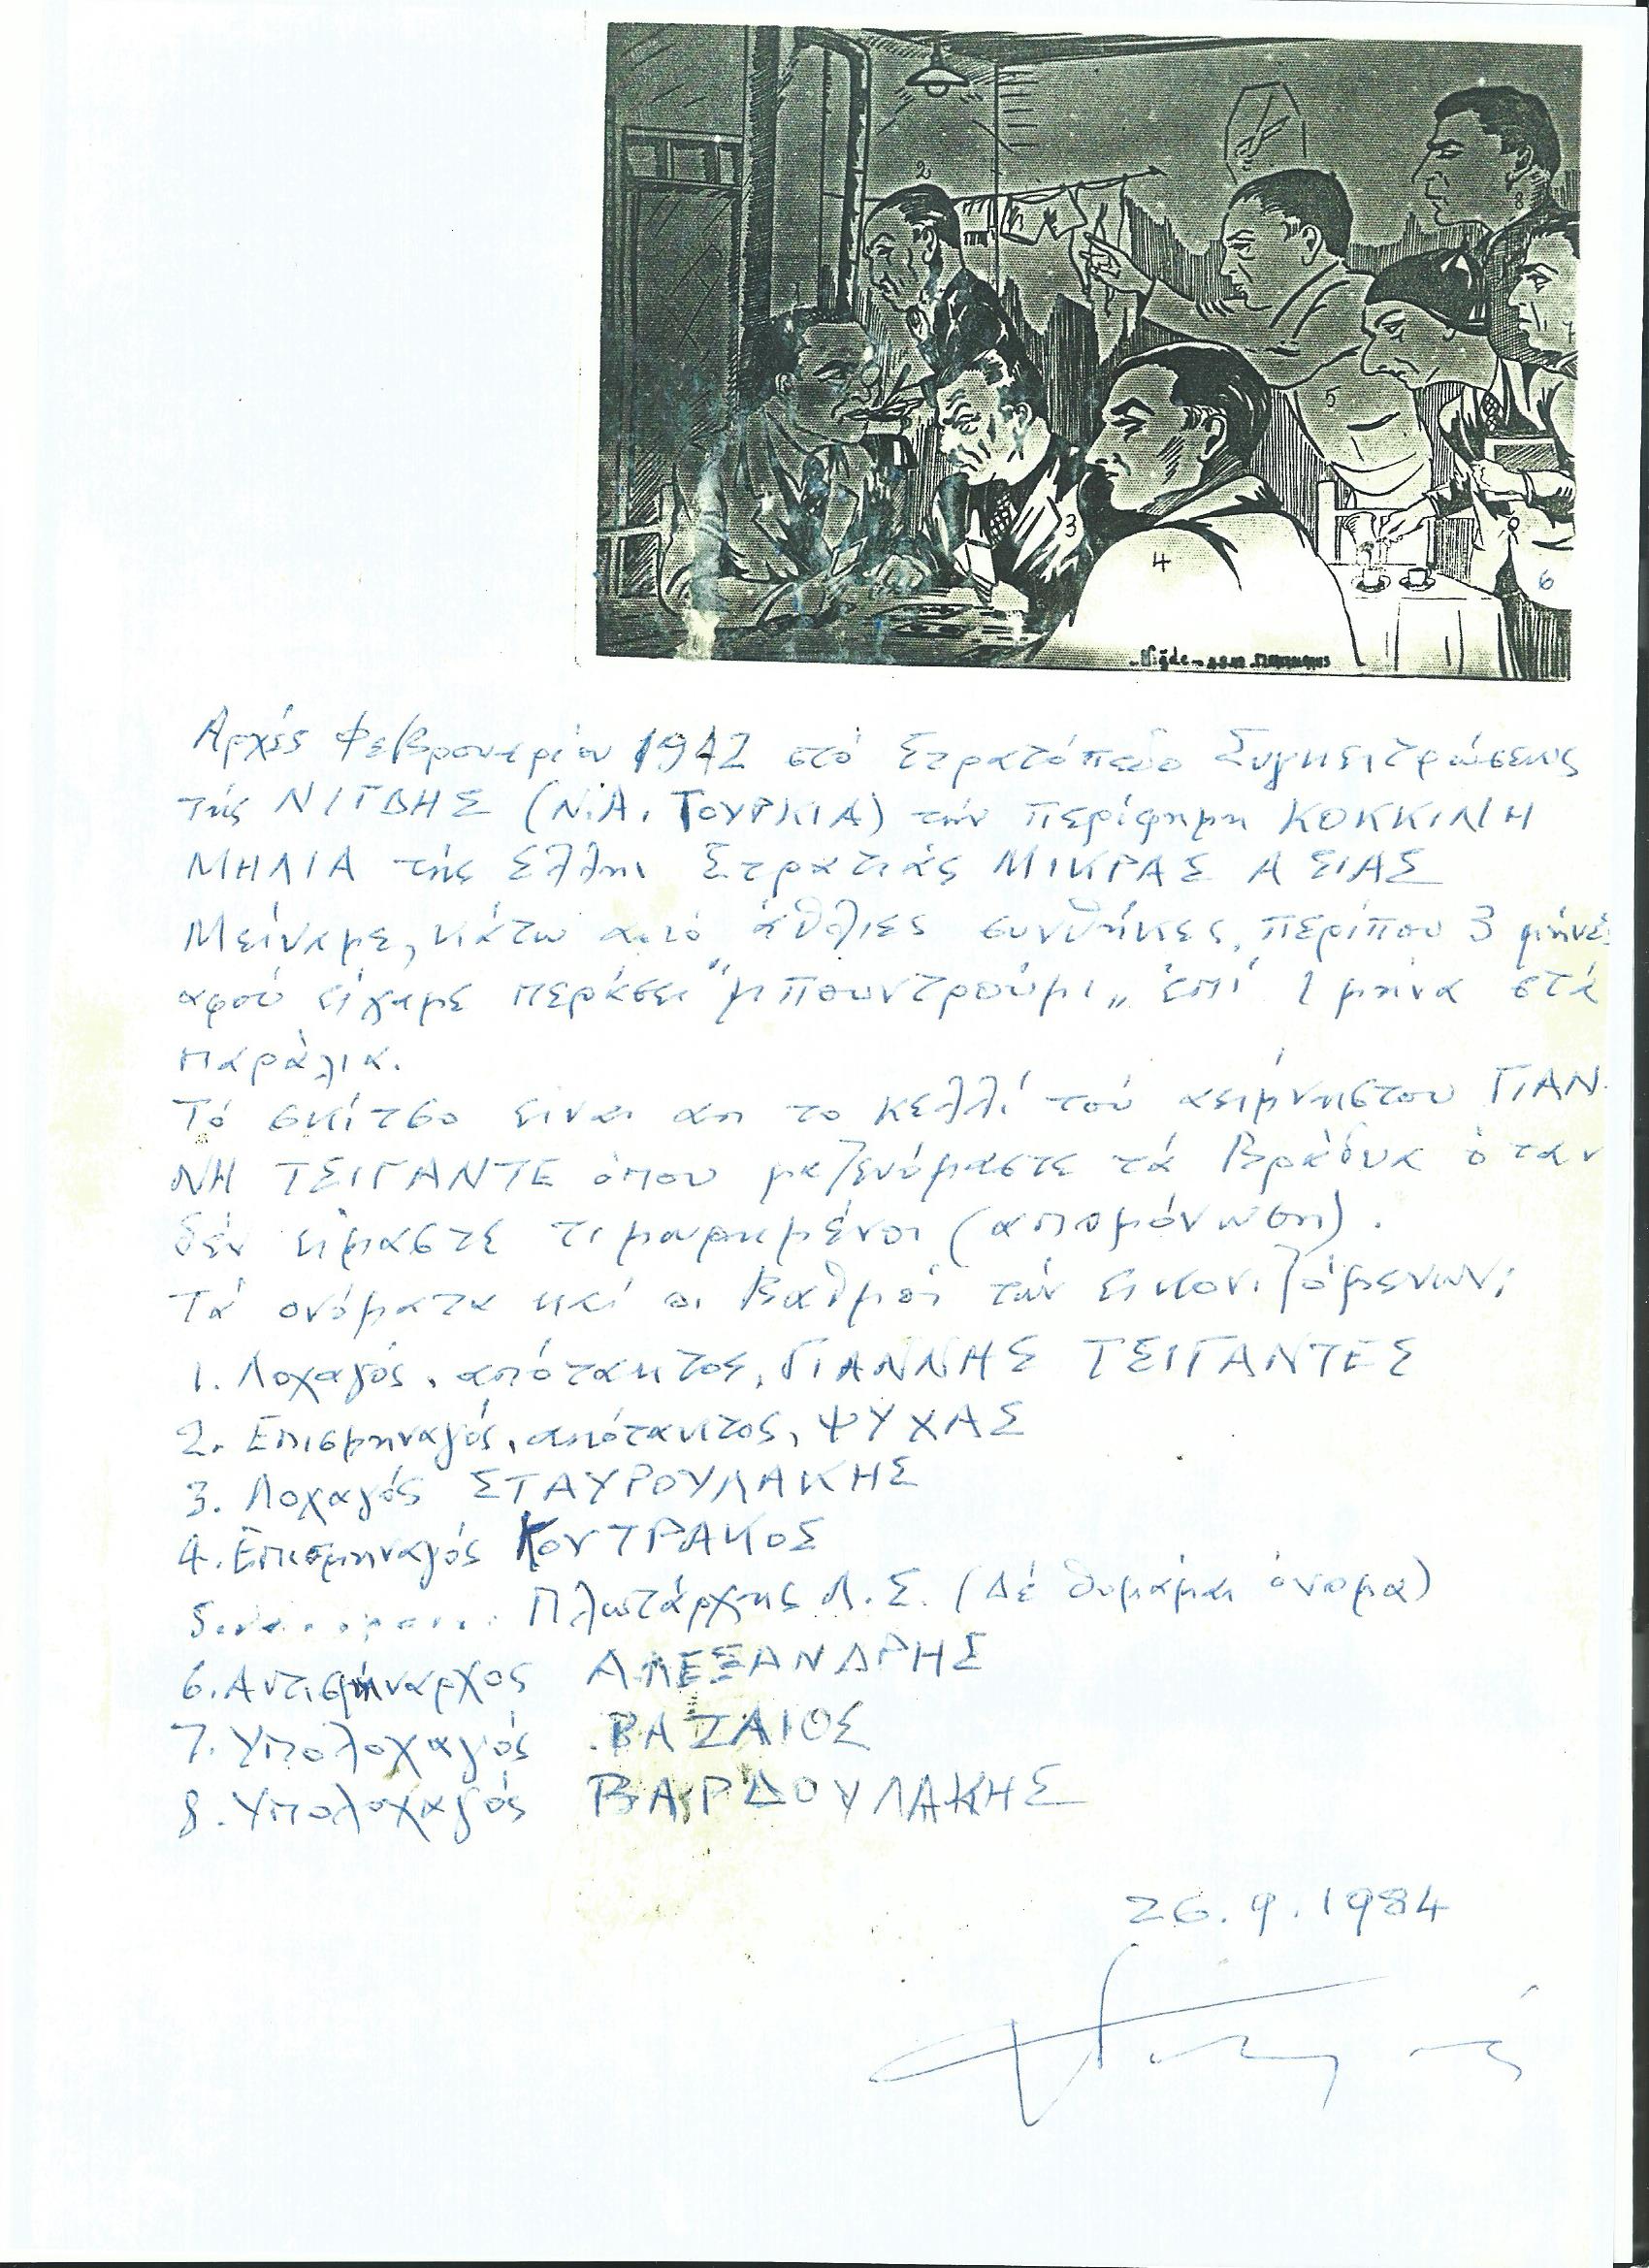 2
1
8
7
5
3
4
9
6
Niğde
Αρχές Φεβρουαρίου 1942 στό Στρατόπεδο Συγκεντρώσεως
τής ΝΙΓΔΗΣ (Ν.Α. ΤΟΥΡΚΙΑ) τήν περίφημη ΚΟΚΚΙΝΗ
ΜΗΛΙΑ τής Ελλην Στρατιάς ΜΙΚΡΑΣ ΑΣΙΑΣ
Μείναμε, κάτω από άθλιες συνθήκες, περίπου 3 μήνες
αφού είχαμε περάσει "μπουντρούμι" επί 1 μήνα στά
παράλια.
Τό σκίτσο είναι απ το κελλί τού αειμνήστου ΓΙΑΝ-
ΝΗ ΤΣΙΓΑΝΤΕ όπου μαζευόμαστε τά βράδυα όταν
δέν είμαστε τιμωρημένοι (απομόνωση).
Τά ονόματα καί οι βαθμοί τών εικονιζόμενων:
1. Λοχαγός, απότακτος, ΓΙΑΝΝΗΣ ΤΣΙΓΑΝΤΕΣ
2. Επισμηναγός, απότακτος, ΨΥΧΑΣ
3. Λοχαγός ΣΤΑΥΡΟΥΛΑΚΗΣ
4. Επισμηναγός ΚΟΥΤΡΑΚΟΣ
5. Πλωτάρχης Λ.Σ. (Δέ θυμάμαι όνομα)
6. Αντισμήναρχος ΑΛΕΞΑΝΔΡΗΣ
7. Υπολοχαγός ΒΑΖΑΙΟΣ
8. Υπολοχαγός ΒΑΡΔΟΥΛΑΚΗΣ
26.9.1984